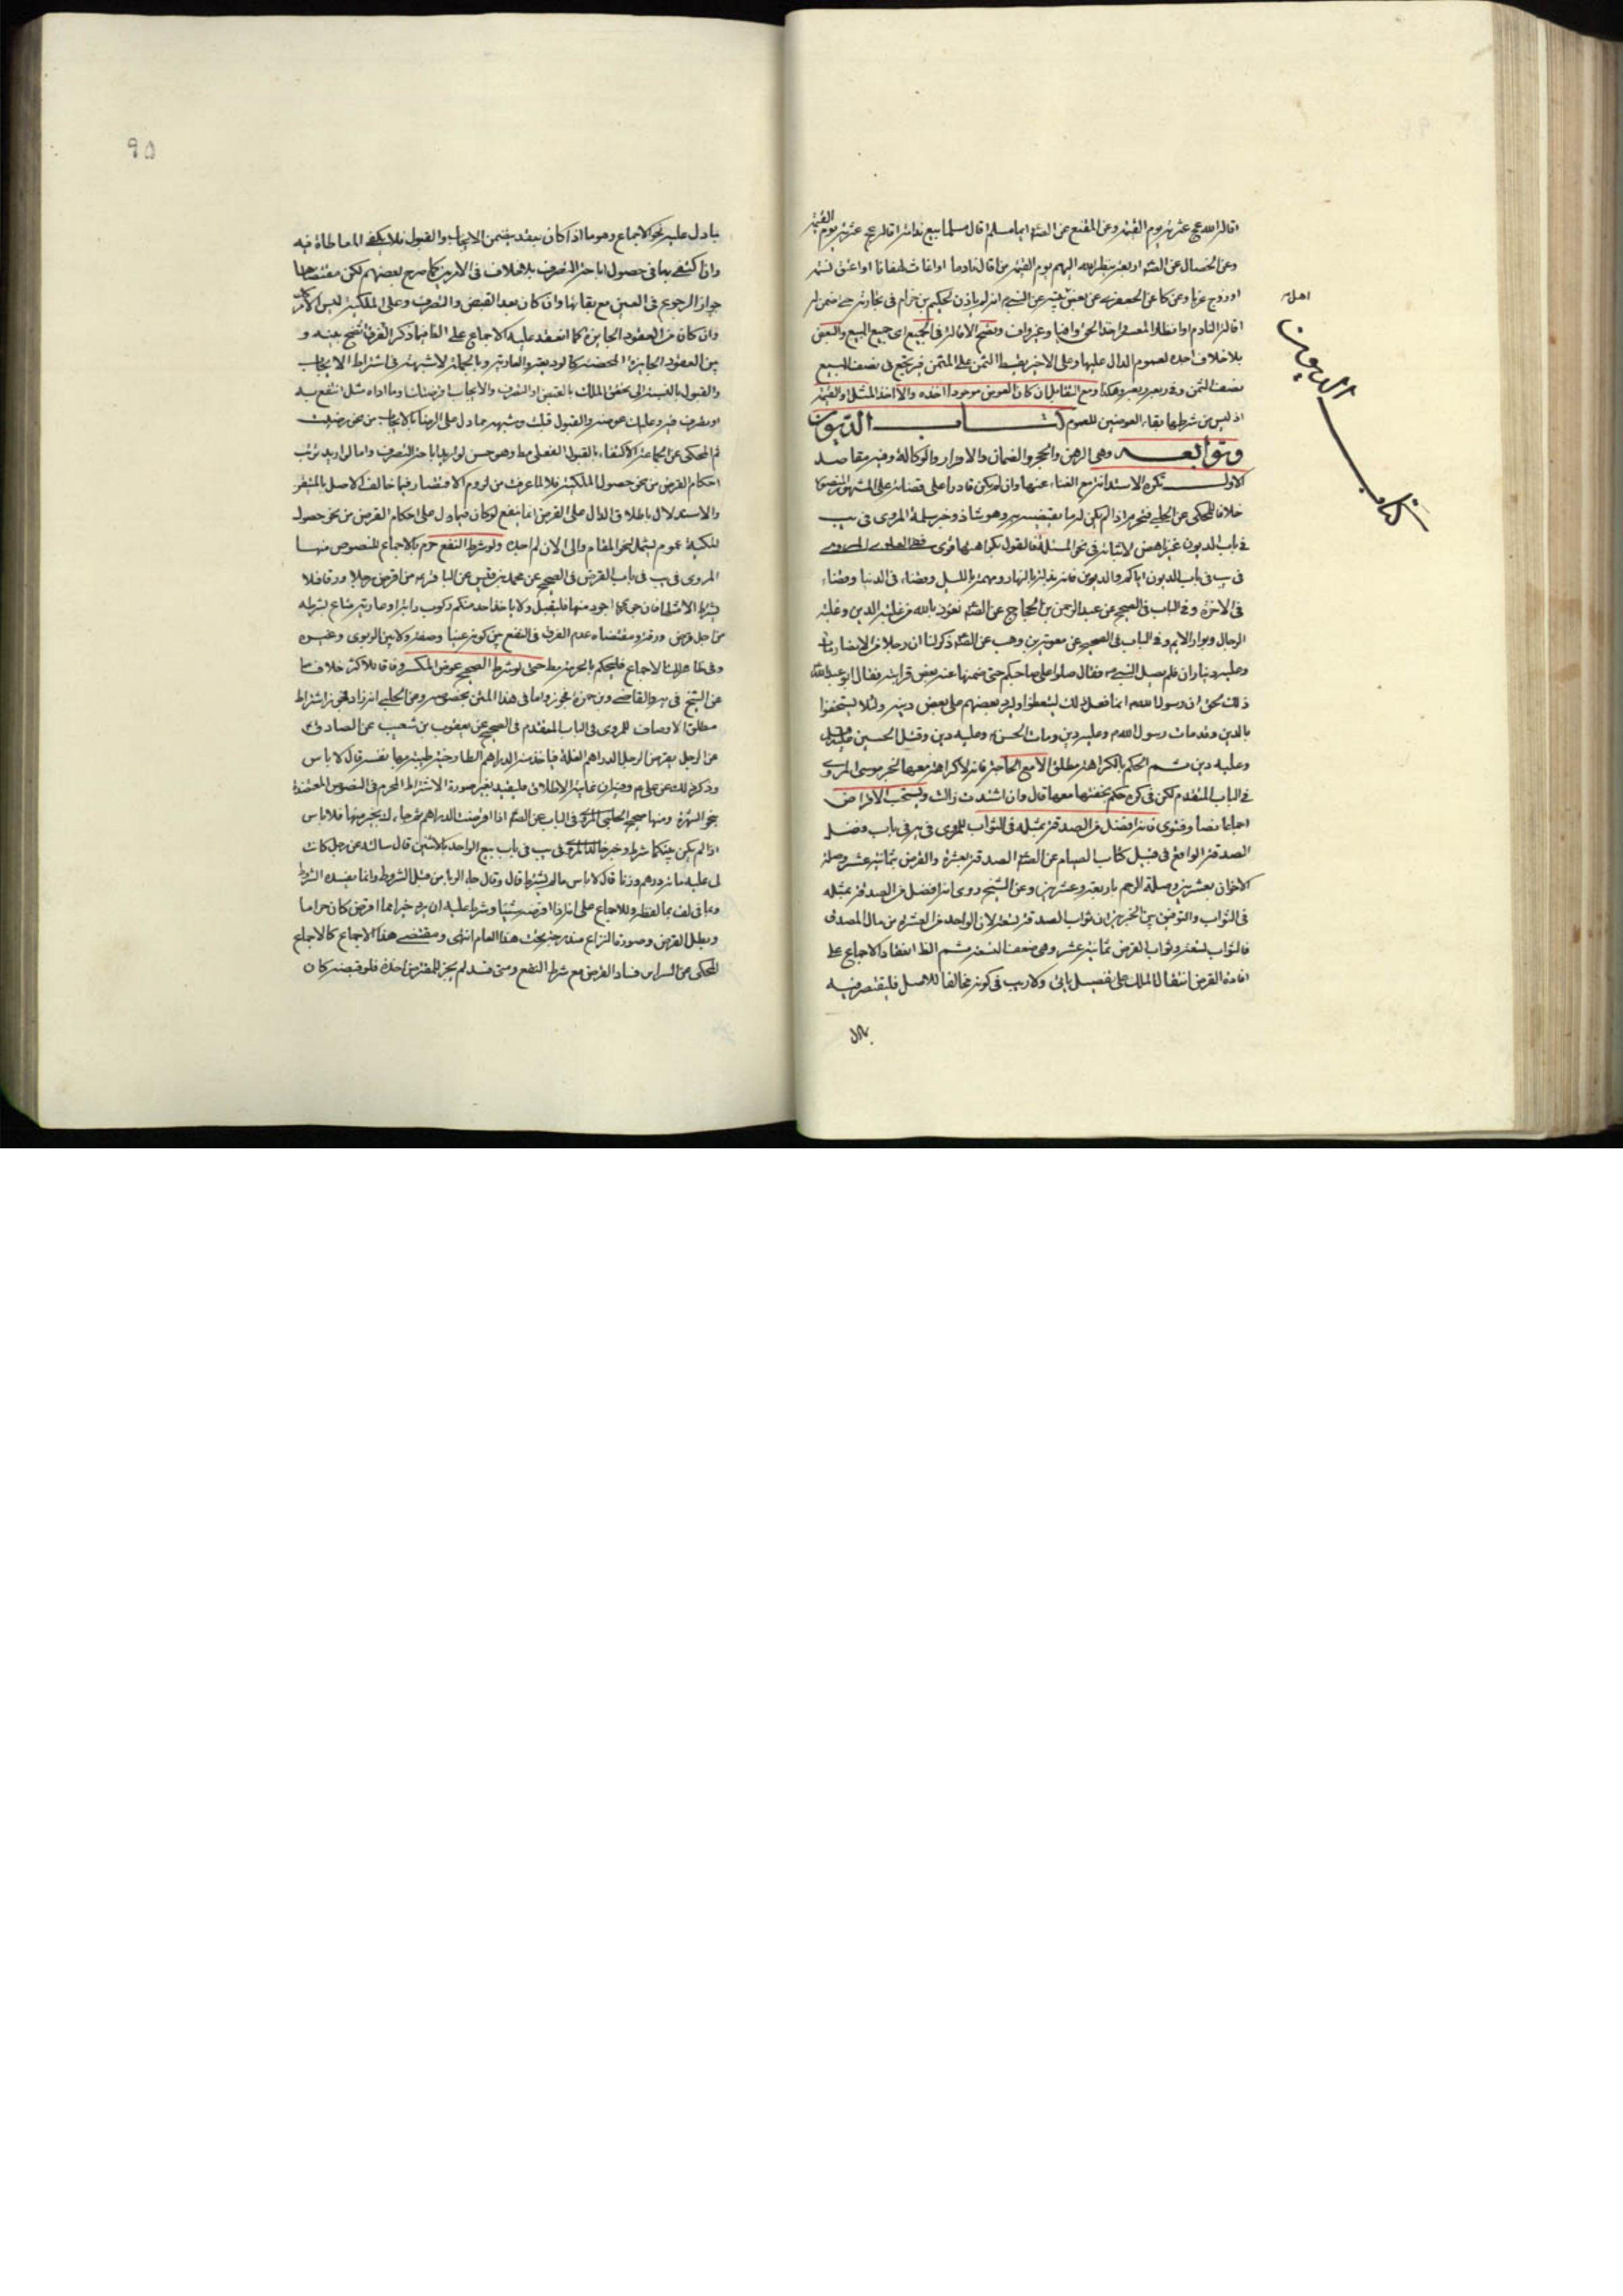 اقاله الله عج عثرته يوم القيمة وعن المقنع عن الصم ايما مسلم اقال مسلما بيع ندامة اقاله عج عثرته يوم القيمة
وعن الخصال عن الصم اربعة ينظر الله اليهم يوم القيمة من اقال نادما او اغاث لهفانا او اعتق نسمة
او زوج عزبا وعن كا عن الجعفري عن بعض عن النبي انه لم ياذن لحكيم بن حزام في تجارته حتى ضمن له
اقالة النادم وانظار المعسر واخذ الحق وافيا وغير واف وتصح الاقالة في الجميع اى جميع المبيع والبعض
بلا خلاف اجده لعموم الدال عليها وعلى الاخير يقسط الثمن على المثمن فيرتجع في نصف المبيع
نصف الثمن وفي ربعه ربعه وهكذا ومع التقايل ان كان العوض موجودا اخذه والا اخذ المثل او القيمة
اذ ليس من شرطها بقاء العوضين للعموم كتاب الديون
وتوابعه وهى الرهن والحجر والضمان والاقرار والوكالة وفيه مقاصد
الاول تكره الاستدانة مع الغناء عنها وان لم يكن قادرا على قضائه على المشهور
خلافا للمحكى عن الحلبي فتحرم اذا لم يكن له ما يقضيه وهو شاذ وخبر سلمة المروى في يب
في باب الديون غير ناهض لاثباته في نحو المسئلة فالقول بكراهتها قوى
في يب في باب الديون اياكم والديون فانه مذلة بالنهار ومهمة بالليل وقضاء في الدنيا وقضاء
في الاخرة وفي الباب في الصحيح عن عبد الرحمن بن الحجاج عن الصم نعوذ بالله من غلبة الدين وغلبة
الرجال وبوار الايم وفي الباب في الصحيح عن معوية بن وهب عن الصم ذكر لنا ان رجلا من الانصار مات
وعليه ديناران فلم يصل النبي وقال صلوا على صاحبكم حتى ضمنها عنه بعض قرابته فقال ابو عبد الله
ذلك الحق ان رسول الله انما فعل ذلك ليتعظوا وليرد بعضهم على بعض دينه ولئلا يستخفوا
بالدين وقد مات رسول الله وعليه دين ومات الحسن وعليه دين وقتل الحسين
وعليه دين ثم الحكم بالكراهة مطلق الا مع الحاجة فانه لا كراهة معها لخبر موسى المروى
في الباب المتقدم لكن في كره حكم بخفتها معها قال وان اشتدت زالت ويستحب الاقراض
اجماعا نصا وفتوى فانه افضل من الصدقة بمثله في الثواب للمروى في في باب فضل
الصدقة الواقع في قبيل كتاب الصيام عن الصم الصدقة بعشرة والقرض بثمانية عشر وصلة
الاخوان بعشرين وصلة الرحم باربعة وعشرين وعن الشيخ روى انه افضل من الصدقة بمثله
في الثواب والتوفيق بين الخبرين ان ثواب الصدقة تسعة لان الواحد من العشرة من مال المصدق
فالثواب تسعة وثواب القرض ثمانية عشر وهى ضعف التسعة ثم الظ انعقاد الاجماع على
افادة القرض انتقال الملك على تفصيل ياتى ولا ريب في كونه مخالفا للاصل فليقتصر فيه
كتاب الديون
٩٥
بما دل عليه نحو الاجماع وهو ما اذا كان بعقد يتضمن الايجاب والقبول فلا يكفي المعاطاة فيه
وان اكتفى بها في حصول اباحة التصرف بلا خلاف في الامرين كما صرح بعضهم لكن مقتضاها
جواز الرجوع في العين مع بقائها وان كان بعد القبض والتصرف وعلى الملكية ليس الامر كك
وان كان من العقود الجايزة كما انعقد عليه الاجماع على الظ فيما ذكر الفرق اتضح بينه و
بين العقود الجايزة المحضة كالوديعة والعارية وبالجملة لا شبهة في اشتراط الايجاب
والقبول بالنسبة الى تحقق الملك بالقبض او التصرف والايجاب اقرضتك وما اداه مثل انتفع به
او تصرف فيه وعليك عوضه والقبول قبلت وشبهه مما دل على الرضا بالايجاب من نحو رضيت
ثم المحكى عن جماعة الاكتفاء بالقبول الفعلى مط وهو حسن لو اريد اباحة التصرف واما لو اريد ترتب
احكام القرض من نحو حصول الملكية فلا لما عرفت من لزوم الاقتصار فيما خالف الاصل بالمتيقن
والاستدلال باطلاق الدال على القرض انما ينفع لو كان فيما دل على احكام القرض من نحو حصول
الملكية عموم ليشمل نحو المقام والى الان لم اجده ولو شرط النفع حرم بالاجماع للنصوص منها
المروى في يب في باب القرض في الصحيح عن محمد بن قيس عن الباقر من اقرض رجلا ورقا فلا
يشترط الا مثلها فان جوزى اجود منها فليقبل ولا ياخذ احد منكم ركوب دابة او عارية متاع يشرطه
من اجل قرض ورقه ومقتضاه عدم الفرق في النفع بين كونه عينا وصفة ولا بين الربوى وغيره
وفي ظاهر الاجماع فليحكم بالحرمة مط حتى لو شرط الصحيح عوض المكسر وفاقا للاكثر خلافا
عن الشيخ في يه والقاضى وبن حمزة فجوزوها في هذا المثن بخصوصه وعن الحلبي انه زاد فجوز اشتراط
مطلق الاوصاف للمروى في الباب المتقدم في الصحيح عن يعقوب بن شعيب عن الصادق
عن الرجل يقرض الرجل الدراهم الغلة فياخذ منه الدراهم الطازجية طيبة بها نفسه قال لا باس
وذكر ذلك عن على وفيه ان غايته الاطلاق فليقيد بغير صورة الاشتراط المحرم في النصوص المعتضدة
بنحو الشهرة ومنها صحيح الحلبي المروى في الباب عن الصم اذا اقرضت الدراهم ثم جاءك بخير منها فلا باس
اذا لم يكن بينكما شرط وخبر خالد المروى في يب في باب بيع الواحد بالاثنين قال سالته عن رجل كانت
لى عليه مائة درهم وزنا قال لا باس ما لم يشترط قال وقال جاء الربا من قبل الشروط وانما يفسده الشروط
وبما في لف بما لفظه وللاجماع على انه اذا اقرضه شيئا وشرط عليه ان يرد خيرا مما اقترض كان حراما
وبطل القرض وصورة النزاع مندرجة تحت هذا العام انتهى ومقتضى هذا الاجماع كالاجماع
المحكى عن السرائر فساد القرض مع شرط النفع ومتى فسد لم يجز للمقترض اخذه فلو قبضه كان